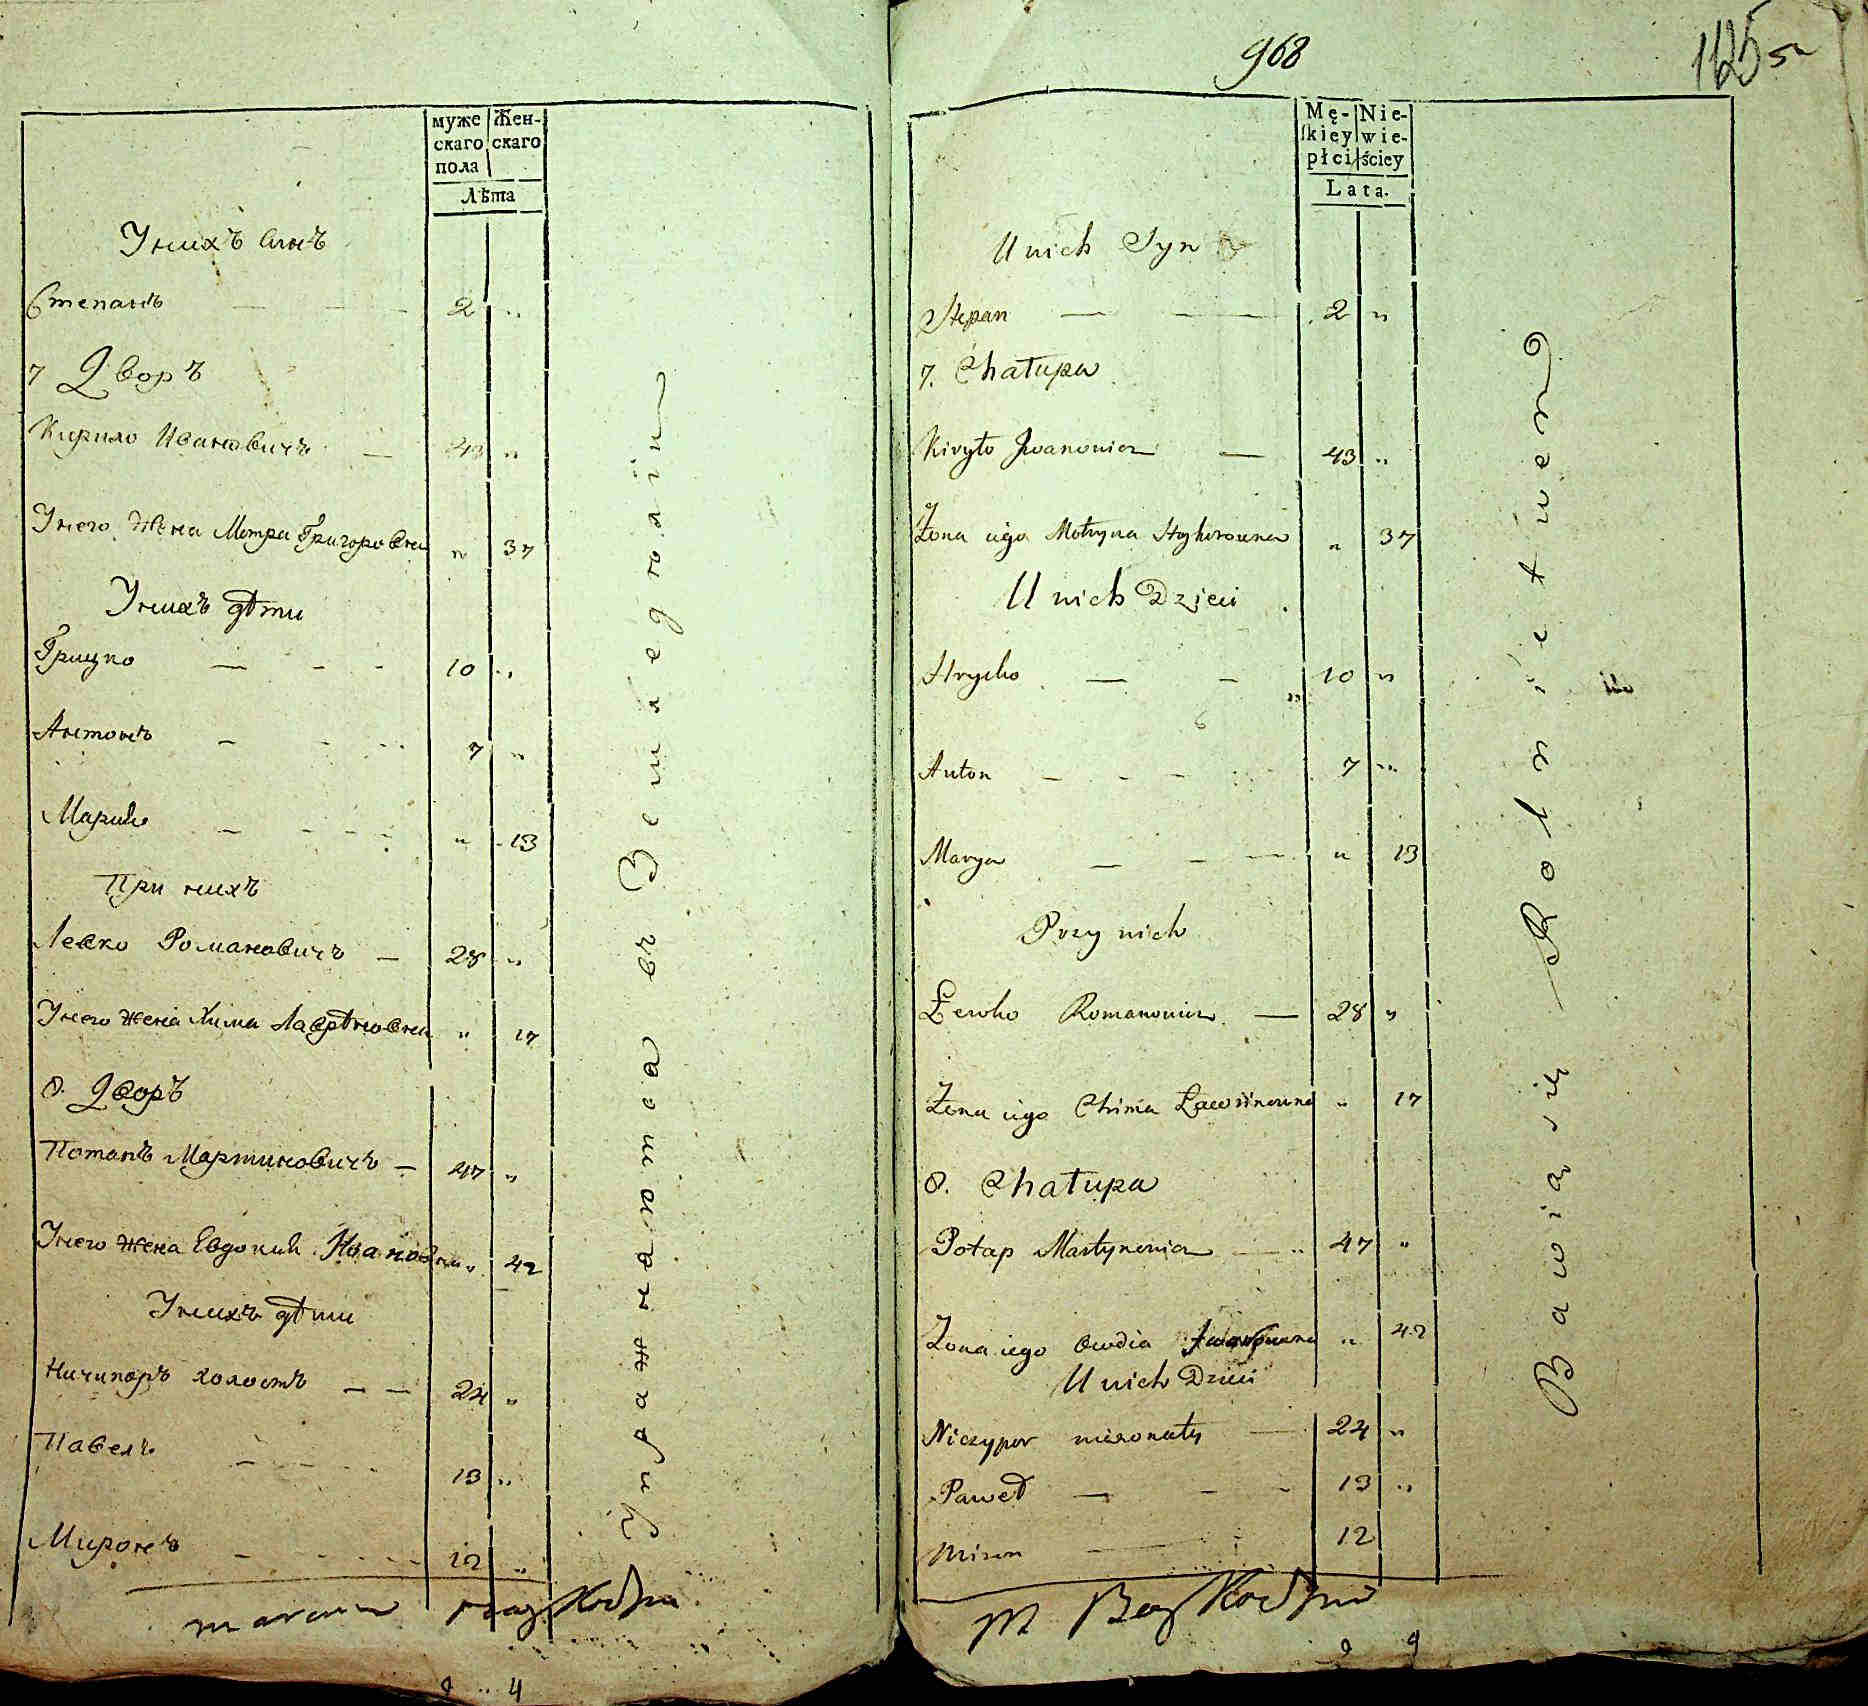 муже
скаго
пола
Жен-
скаго
Лѣта
У нихъ Сынъ
Степанъ — — — 2 "
7 Дворъ
Кирило Ивановичъ — 43 "
У него Жена Мотра Григоровна " 37
У нихъ дѣти
Грицко — - - 10 "
Антонъ - - - 7 "
Мария - - - " 13
При нихъ
Левко Романовичъ — 28 "
У него жена Хима Лаврѣновна " 17
8. Дворъ
Потапъ Мартиновичъ — 47 "
У него жена Евдокия Ивановна " 42
У нихъ дѣти
Ничипоръ холостъ — — 24 "
Павелъ - - - 13 "
Миронъ - - - 12 "
Упражняются въ Земледѣлiи
968
1125
Mę-
skiey
płci
Nie-
wie-
ściey
Lata.
U nich Syn
Stepan — — — 2 "
7. Chałupa
Kiryło Jwanowicz — 43 "
Żona iego Motryna Hryhorowna " 37
U nich Dzieci
Hrycko — - 10 "
Anton - - - 7 "
Marya — - — " 13
Przy nich
Łewko Romanowicz — 28 "
Żona iego Chima Ławrinowna " 17
8. Chałupa
Potap Martynowicz — 47 "
Żona iego Owdia Jwanowna " 42
U nich Dzieci
Niczypor nieżonaty — 24 "
Paweł — - - 13 "
Miron — - 12
Bawią się Rolnictwem